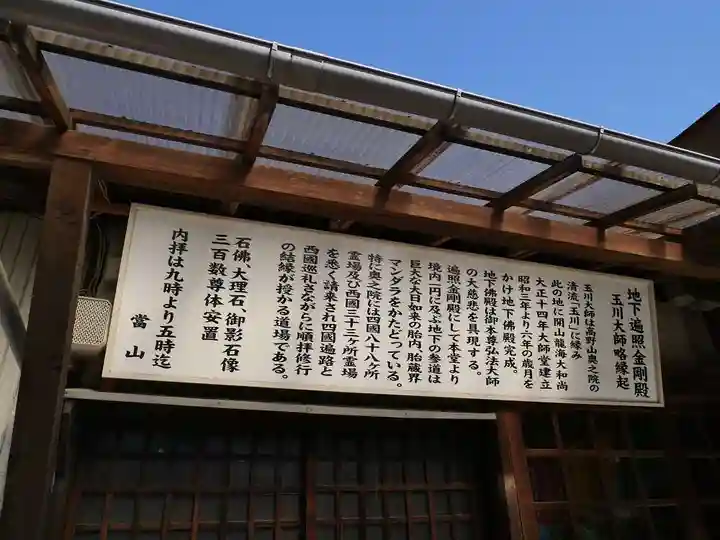 地下遍照金剛殿
玉川大師略縁起
玉川大師は高野山奥之院の
清流「玉川」に縁み
此の地に開山龍海大和尚
大正十四年大師堂建立
昭和三年より六年の歳月を
かけ地下佛殿完成。
地下佛殿は御本尊弘法大師
の大慈悲を具現する。
遍照金剛殿にして本堂より
境内一円に及ぶ地下の参道は
巨大な大日如来の胎内、胎蔵界
マンダラをかたどっている。
特に奥之院には四國八十八ケ所
霊場及び西國三十三ヶ所霊場
を悉く請来され四國遍路と
西國巡礼さながらに順拝修行
の結縁が授かる道場である。
石佛、大理石、御影石像
三百数尊体安置
内拝は九時より五時迄
當山